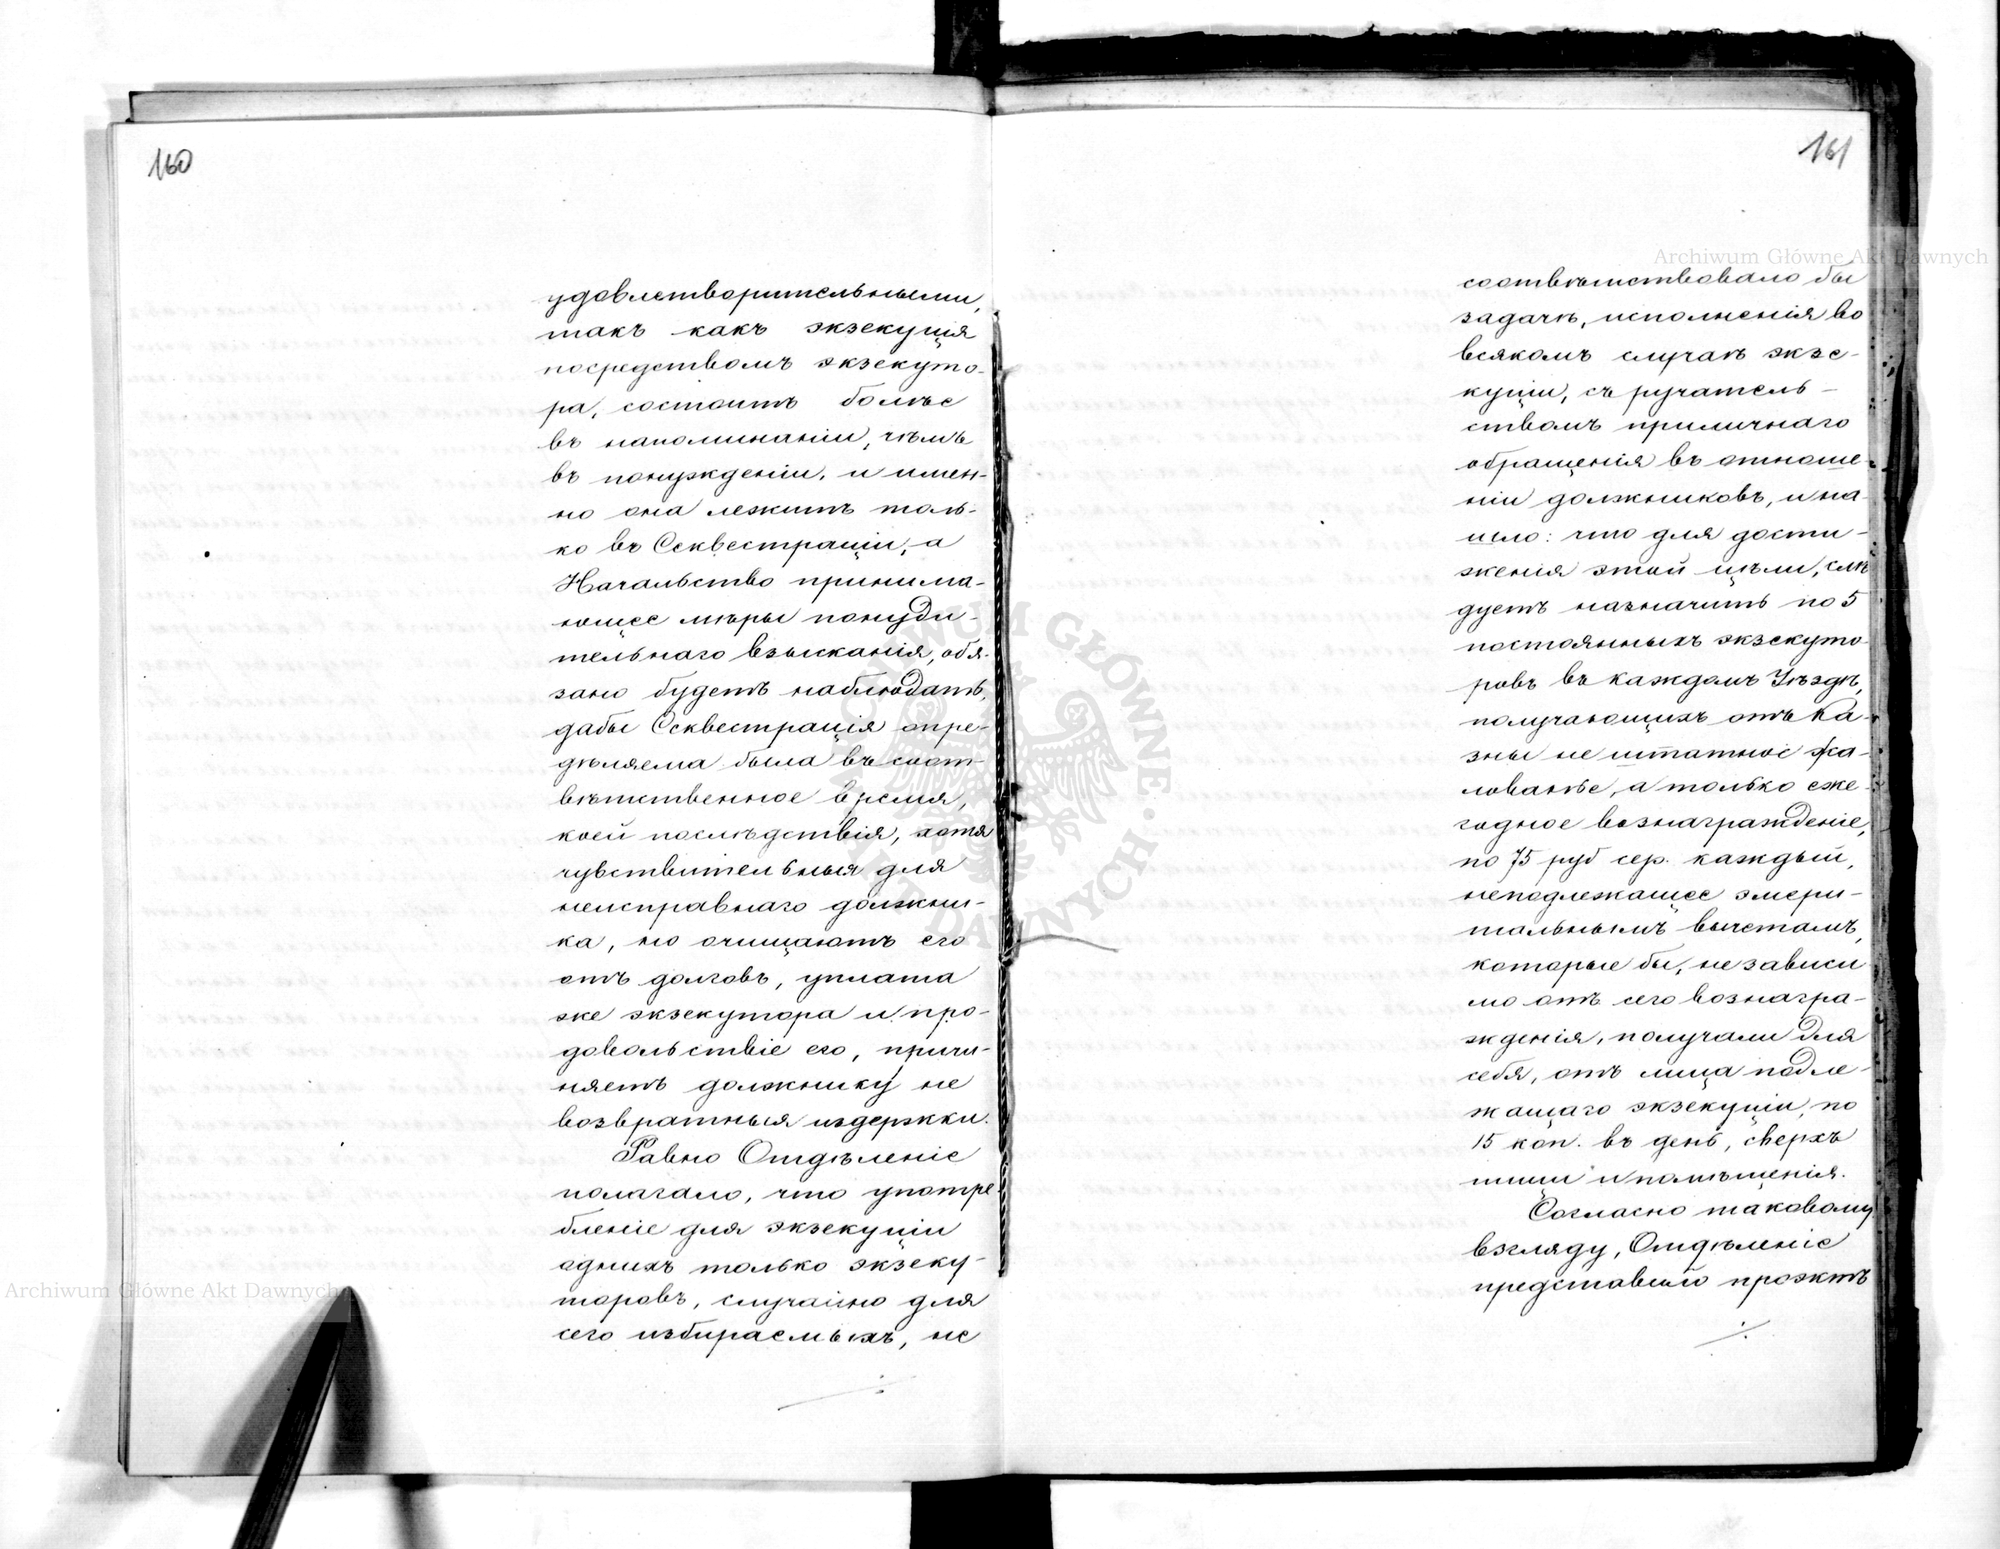 160
удовлетворительными,
такъ какъ экзекуція
посредствомъ экзекуто-
ра, состоитъ болѣе
въ напоминаніи, чѣмъ
въ понужденіи, и имен-
но она лежитъ толь-
ко въ Секвестраціи, а
Начальство принима-
ющее мѣры понуди-
тельнаго взысканія, обя-
зано будетъ наблюдать,
дабы Секвестрація опре-
дѣляема была въ соот-
вѣтственное время,
коей послѣдствія, хотя
чувствительныя для
неисправнаго должни-
ка, но очищаютъ его
отъ долговъ, уплата
же экзекутора и про-
довольствіе его, причи-
няетъ должнику не
возвратныя издержки.
Равно Отдѣленіе
полагало, что употре
бленіе для экзекуціи
однихъ только экзеку-
торовъ, случайно для
сего избираемыхъ, не
161
соотвѣтствовало бы
задачѣ, исполненія во
всякомъ случаѣ экзе-
куціи, съ ручатель-
ствомъ приличнаго
обращенія въ отноше-
ніи должниковъ, и на-
шло: что для дости-
женія этой цѣли, слѣ
дуетъ назначить по 5
постоянныхъ экзекуто-
ровъ въ каждомъ Уѣздѣ,
получающихъ отъ Ка-
зны не штатное жа-
лованье, а только еже-
годное вознагражденіе,
по 75 руб сер. каждый,
неподлежащее эмери-
тальнымъ вычетамъ,
которые бы, не зависи
мо отъ сего вознагра-
жденія, получали для
себя, отъ лица подле-
жащаго экзекуціи, по
15 коп. въ день, сверхъ
пищи и помѣщенія.
Согласно таковому
взгляду, Отдѣленіе
представило проэктъ
Archiwum Główne Akt Dawnych
Archiwum Główne Akt Dawnych
ARCHIWUM GŁÓWNE AKT DAWNYCH